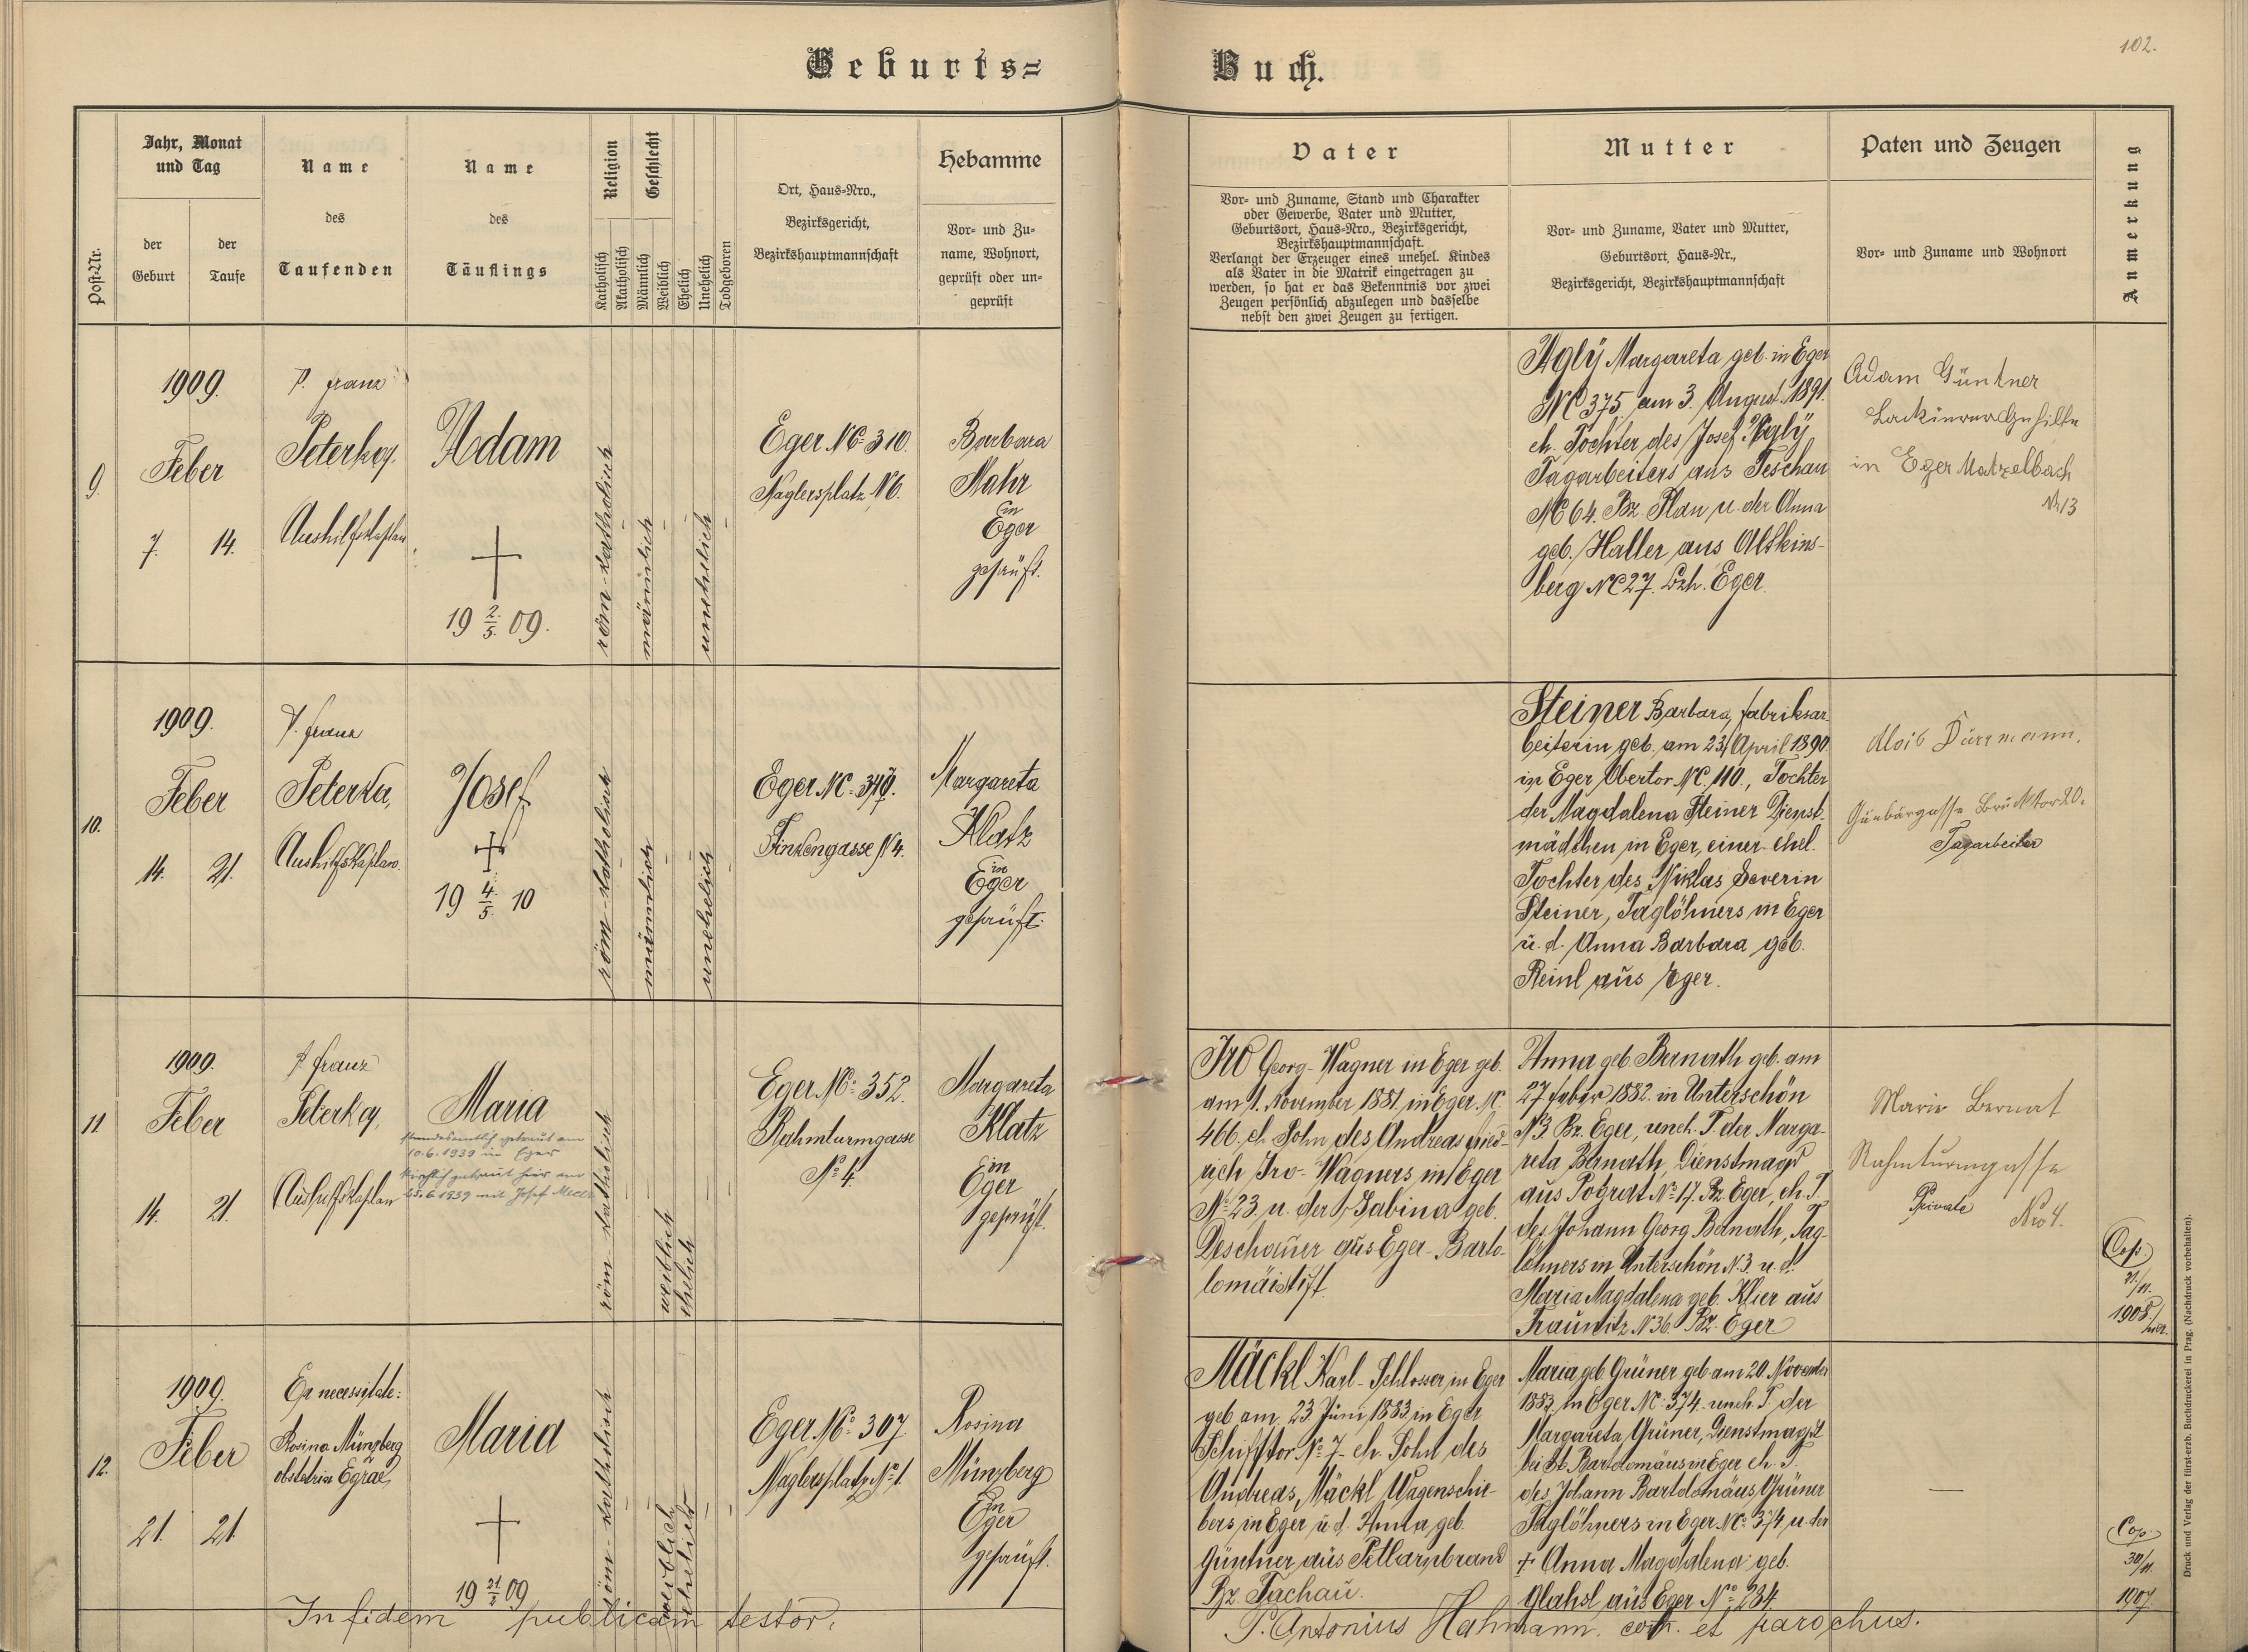 102.
Geburts=
Buch.
Post-Nr.
Jahr, Monat
und Tag
der
Geburt
der
Taufe
Name
des
Taufenden
Name
des
Täuflings
Religion
Katholisch
Akatholisch
Geschlecht
Männlich
Weiblich
Ehelich
Unehelich
Todgeboren
Ort, Haus-Nro.,
Bezirksgericht,
Bezirkshauptmannschaft
Hebamme
Vor- und Zu-
name, Wohnort,
geprüft oder un-
geprüft
Vater
Vor- und Zuname, Stand und Charakter
oder Gewerbe, Vater und Mutter,
Geburtsort, Haus-Nro., Bezirksgericht,
Bezirkshauptmannschaft.
Verlangt der Erzeuger eines unehel. Kindes
als Vater in die Matrik eingetragen zu
werden, so hat er das Bekenntnis vor zwei
Zeugen persönlich abzulegen und dasselbe
nebst den zwei Zeugen zu fertigen.
Mutter
Vor- und Zuname, Vater und Mutter,
Geburtsort, Haus-Nr.,
Bezirksgericht, Bezirkshauptmannschaft
Paten und Zeugen
Vor- und Zuname und Wohnort
Anmerkung
9.
1909.
Feber
7. 14.
P. Franz
Peterka,
Aushilfskaplan
Adam
19 2./5. 09.
röm-katholisch
männlich
unehelich
Eger NC. 310.
Naglersplatz N 6.
Barbara
Mahr
in
Eger
geprüft.
Margareta geb. in Eger
NC 375 am 3. August 1891.
eh. Tochter des Josef
Tagarbeiters aus Teschau
NC 64. Bz. Plan u. der Anna
geb. Haller aus Altkins-
berg NC 27. Bzh. Eger.
Adam Güntner
Lackierergehilfe
in Eger Matzelbach
Nr 13
10.
1909.
Feber
14. 21.
P. Franz
Peterka,
Aushilfskaplan.
Josef
19 4./5. 10
röm-katholisch
männlich
unehelich
Eger NC.
Finkengasse N 4.
Margareta
Klatz
in
Eger
geprüft.
Steiner Barbara, Fabriksar-
beiterin geb. am 23. April 1890
in Eger Obertor NC. 110., Tochter
der Magdalena Steiner Dienst-
mädchen in Eger, einer ehel.
Tochter des Niklas Severin
Steiner, Taglöhners in Eger
u. d. Anna Barbara geb.
Reinl aus Eger.
Alois Dürrmann.
Brucktor 20.
Tagarbeiter
11
1909.
Feber
14. 21.
P. Franz
Peterka,
Aushilfskaplan
Maria
standesamtlich getraut am
10.6.1939 in Eger
kirchlich getraut hier am
25.6.1939 mit Josef
röm-katholisch
weiblich
ehelich
Eger NC. 352.
Rahmturmgasse
No 4.
Margareta
Klatz
in
Eger
geprüft.
Iro Georg-Wagner in Eger geb.
am 1. November 1881. in Eger N.
466. eh. Sohn des Andreas Fried-
rich Iro-Wagners in Eger
No 23. u. der Sabina geb.
Deschauer aus Eger-Barto-
lomäistift.
Anna geb. Bernath geb. am
27 Feber 1882. in Unterschön
N 3 Bz. Eger, uneh. T. der Marga-
reta Bernath, Dienstmagd
aus Pograt No 17. Bz. Eger, eh. T.
des Johann Georg Bernath, Tag-
löhners in Unterschön N. 3. u. d.
Maria Magdalena geb. Klier aus
Fraunitz N 36. Bz. Eger.
Marie Bernat
Rahmturmgasse
Private
Nro 4.
Cop.
21./11.
1908.
hier.
12.
1909.
Feber
21. 21
Ex necessitate:
Rosina Münzberg
obstetrix Egrae
Maria
19 21/2 09
röm-katholisch
weiblich
ehelich
Eger NC. 307.
Naglersplatz No 1.
Rosina
Münzberg
in
Eger
geprüft.
Mäckl Karl-Schlosser, in Eger
geb am 23. Juni 1883 in Eger
Schifftor No 7. eh. Sohn des
Andreas Mäckl Wagenschie-
bers in Eger u. d. Anna geb.
Güntner aus Petlarnbrand
Bz. Tachau.
Maria geb Grüner geb am 20. November
1883 in Eger NC. 374. uneh. T. der
Margareta Grüner, Dienstmagd
bei St. Bartolomäus in Eger eh. T.
des Johann Bartolomäus Grüner
Taglöhners in Eger NC. 374 u. der
+ Anna Magdalena geb.
Glahsl aus Eger No 234.
—
Cop.
30/11.
1907.
In fidem publicam testor.
P. Antonius Hahmann. et parochus.
Druck und Verlag der fürst-erzb. Buchdruckerei in Prag. (Nachdruck vorbehalten).